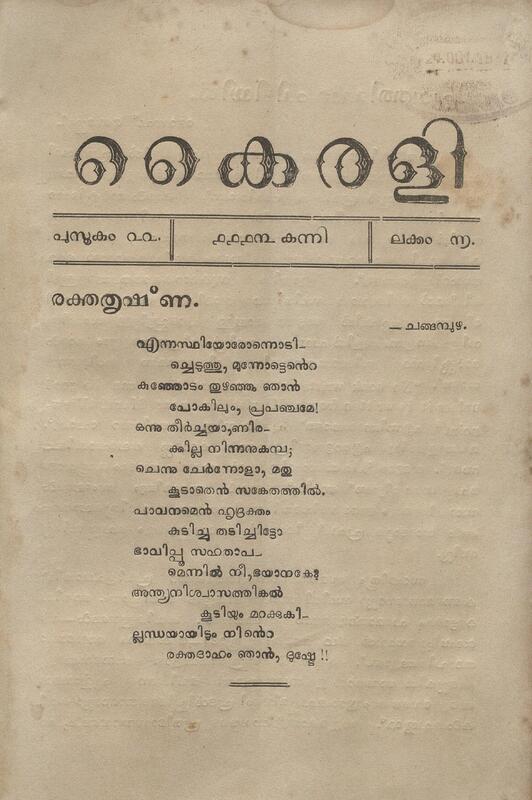 കൈരളി
പുസ്തകം ൨൨. ൧൧൧൩ കന്നി ലക്കം ൩.
രക്തതൃഷ്ണ.
— ചങ്ങമ്പുഴ.
എന്നസ്ഥിയോരോന്നൊടി–
ച്ചെടുത്തു, മുന്നോട്ടെൻെറ
കുഞ്ഞോടം തുഴഞ്ഞു ഞാൻ
പോകിലും, പ്രപഞ്ചമേ!
ഒന്നു തീർച്ചയാ,ണിര–
ക്കില്ല നിന്നനുകമ്പ;
ചെന്നു ചേർന്നോളാ, മതു
കൂടാതെൻ സങ്കേതത്തിൽ.
പാവനമെൻ ഹൃദ്രക്തം
കുടിച്ചു തടിച്ചിട്ടോ
ഭാവിപ്പൂ സഹതാപ–
മെന്നിൽ നീ,ഭയാനകേ?
അന്ത്യനിശ്വാസത്തിങ്കൽ
കൂടിയും മറക്കുകി–
ല്ലന്ധയായിടും നിൻെറ
രക്തദാഹം ഞാൻ, ദുഷ്ടേ!!